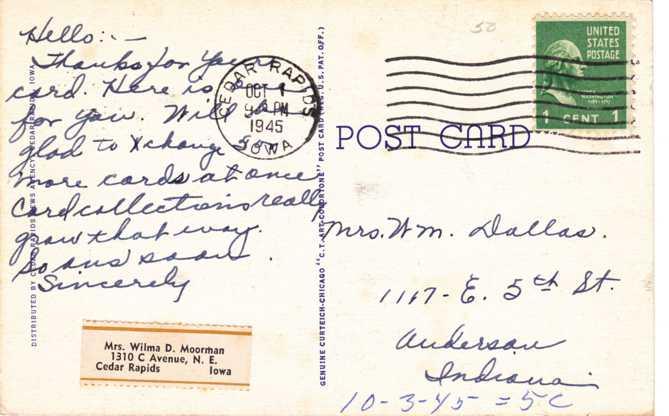 Hello:-
Thanks for your
card. Here is one
for you. Will be
glad to Xchange some
more cards at once
Card collections really
grow that way.
So ans soon.
Sincerely
Mrs. Wilma D. Moorman
1310 C Avenue, N. E.
Cedar Rapids Iowa
DISTRIBUTED BY CEDAR RAPIDS NEWS AGENCY, CEDAR RAPIDS, IOWA
GENUINE CURTEICH-CHICAGO "C.T. ART-COLORTONE" POST CARD (REG. U.S. PAT. OFF.)
CEDAR RAPIDS
OCT 1
PM
1945
IOWA
50
UNITED
STATES
POSTAGE
WASHINGTON
1 CENT 1
POST CARD
Mrs. Wm. Dallas.
1117-E. 5th St.
Anderson
Indiana
10-3-45 = 5C